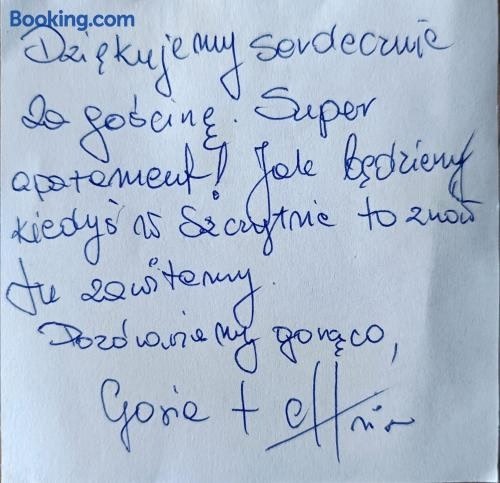 Booking.com
Dziękujemy serdecznie
za gościnę. Super
apatament! Jak będziemy
kiedyś w Szczytnie to znów
tu zawitamy.
Pozdrawiamy gorąco,
Gosia +